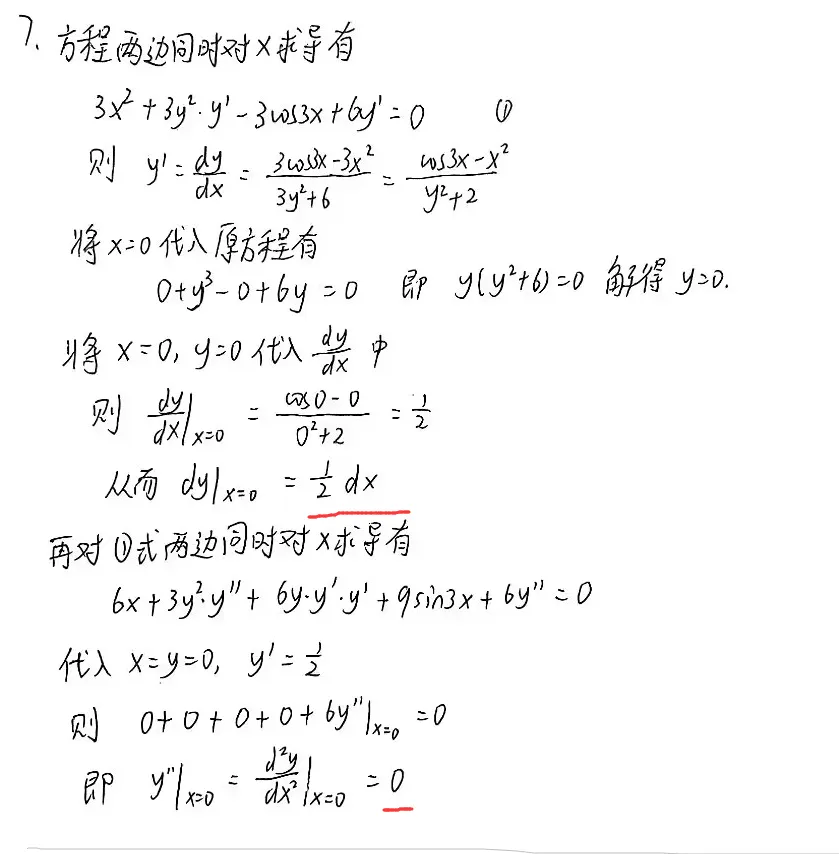 7. 方程两边同时对x求导有
3x²+3y²·y'-3cos3x+6y'=0 ①
则 y'=dy/dx=(3cos3x-3x²)/(3y²+6)=(cos3x-x²)/(y²+2)
将x=0代入原方程有
0+y³-0+6y=0 即 y(y²+6)=0 解得 y=0.
将 x=0, y=0 代入 dy/dx 中
则 dy/dx|x=0 = (cos0-0)/(0²+2) = 1/2
从而 dy|x=0 = 1/2 dx
再对①式两边同时对x求导有
6x+3y²·y''+6y·y'·y'+9sin3x+6y''=0
代入 x=y=0, y'=1/2
则 0+0+0+0+6y''|x=0 =0
即 y''|x=0 = d²y/dx²|x=0 = 0